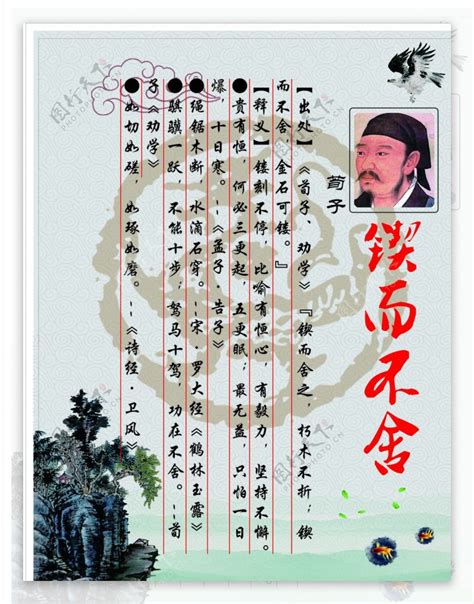 锲而不舍
荀子
【出处】《荀子、劝学》『锲而舍之，朽木不折；锲
而不舍，金石可镂。』
【释义】镂刻不停，比喻有恒心，有毅力，坚持不懈。
●贵有恒，何必三更起，五更眠；最无益，只怕一日
爆十日寒。--《孟子·告子》
●绳锯木断，水滴石穿。--宋·罗大经《鹤林玉露》
●骐骥一跃，不能十步；驽马十驾，功在不舍。--荀
子《劝学》
●如切如磋，如琢如磨。--《诗经·卫风》